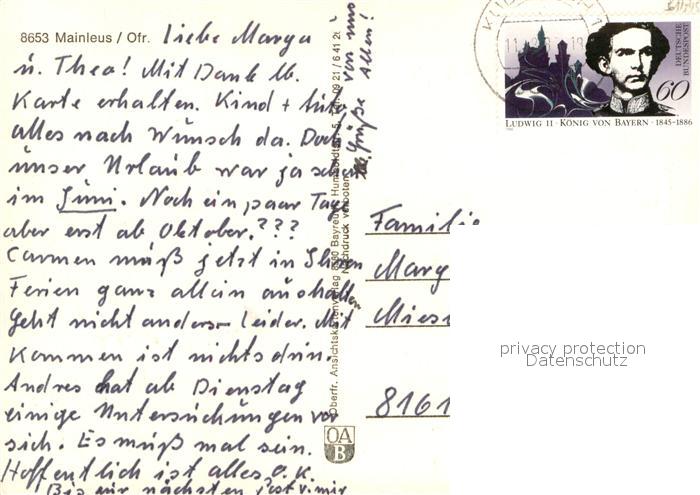 8653 Mainleus / Ofr.
Liebe Marga
u. Theo! Mit Dank lb.
Karte erhalten. Kind +
alles nach Wunsch da. Doch
unser Urlaub war ja schon
im Juni. Noch ein paar Tage
aber erst ab Oktober.???
Carmen muß jetzt in Ihren
Ferien ganz allein aushalten
Geht nicht anders – leider. Mit
Kommen ist nichts drin.
Andres hat ab Dienstag
einige Untersuchungen vor
sich. Es muß mal sein.
Hoffentlich ist alles o.K.
Bis zur nächsten
Grüße von uns
allen!
Oberfr. Ansichtskartenverlag 8580 Bayreuth, Humboldtstr. 5, Tel. 09 21 / 6 41 26
Nachdruck verboten
OA
B
DEUTSCHE
BUNDESPOST
60
LUDWIG II · KÖNIG VON BAYERN · 1845-1886
Familie
Marg
Mies
8161
privacy protection
Datenschutz